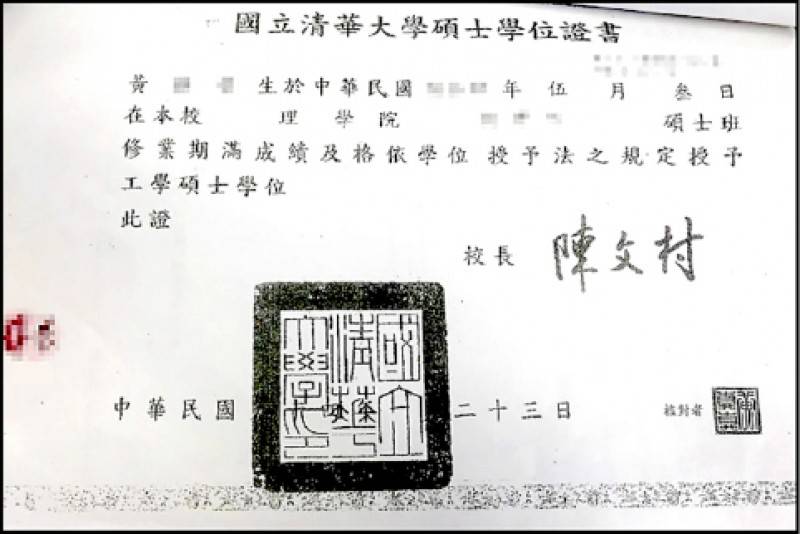 國立清華大學碩士學位證書
黃 生於中華民國 年 伍 月 叁 日
在本校 理學院 碩士班
修業期滿成績及格依學位授予法之規定授予
工學碩士學位
此證
校長 陳文村
國立清華大學
中華民國 二十三日 核對者